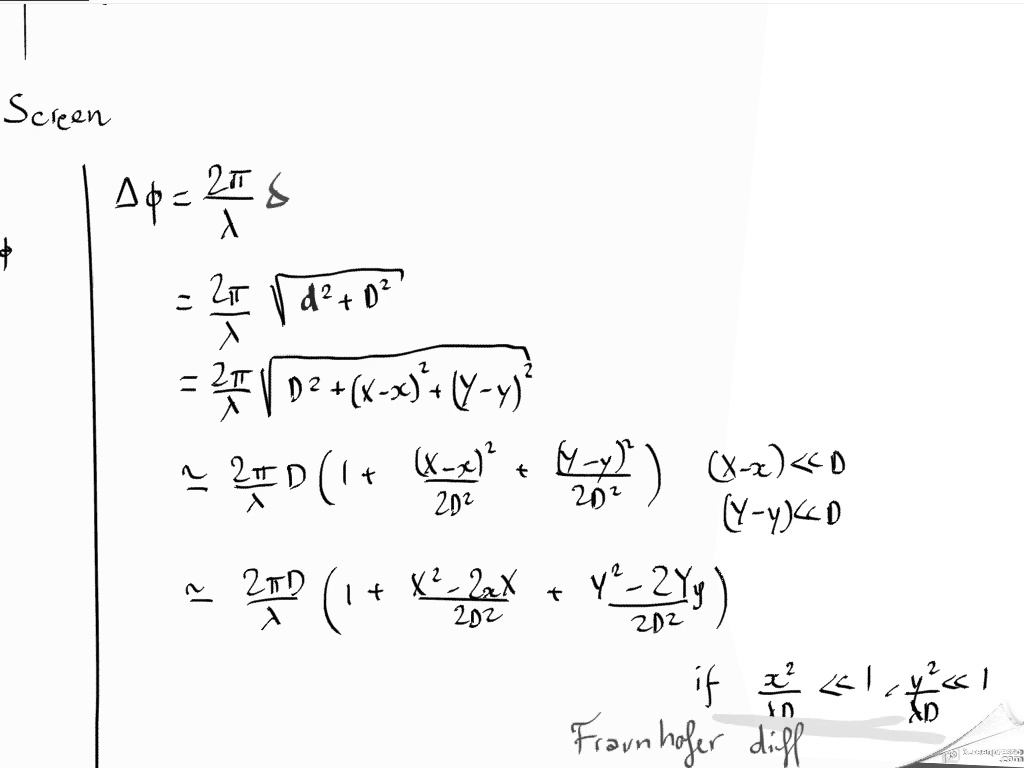 Screen
Δϕ = 2π/λ δ
ϕ
= 2π/λ √(d² + D²)
= 2π/λ √(D² + (X-x)² + (Y-y)²)
≃ 2π/λ D (1 + (X-x)²/2D² + (Y-y)²/2D²) (X-x) ≪ D
(Y-y) ≪ D
≃ 2πD/λ (1 + X² - 2xX/2D² + Y² - 2Yy/2D²)
if x²/λD ≪ 1, y²/λD ≪ 1
Fraunhofer diff